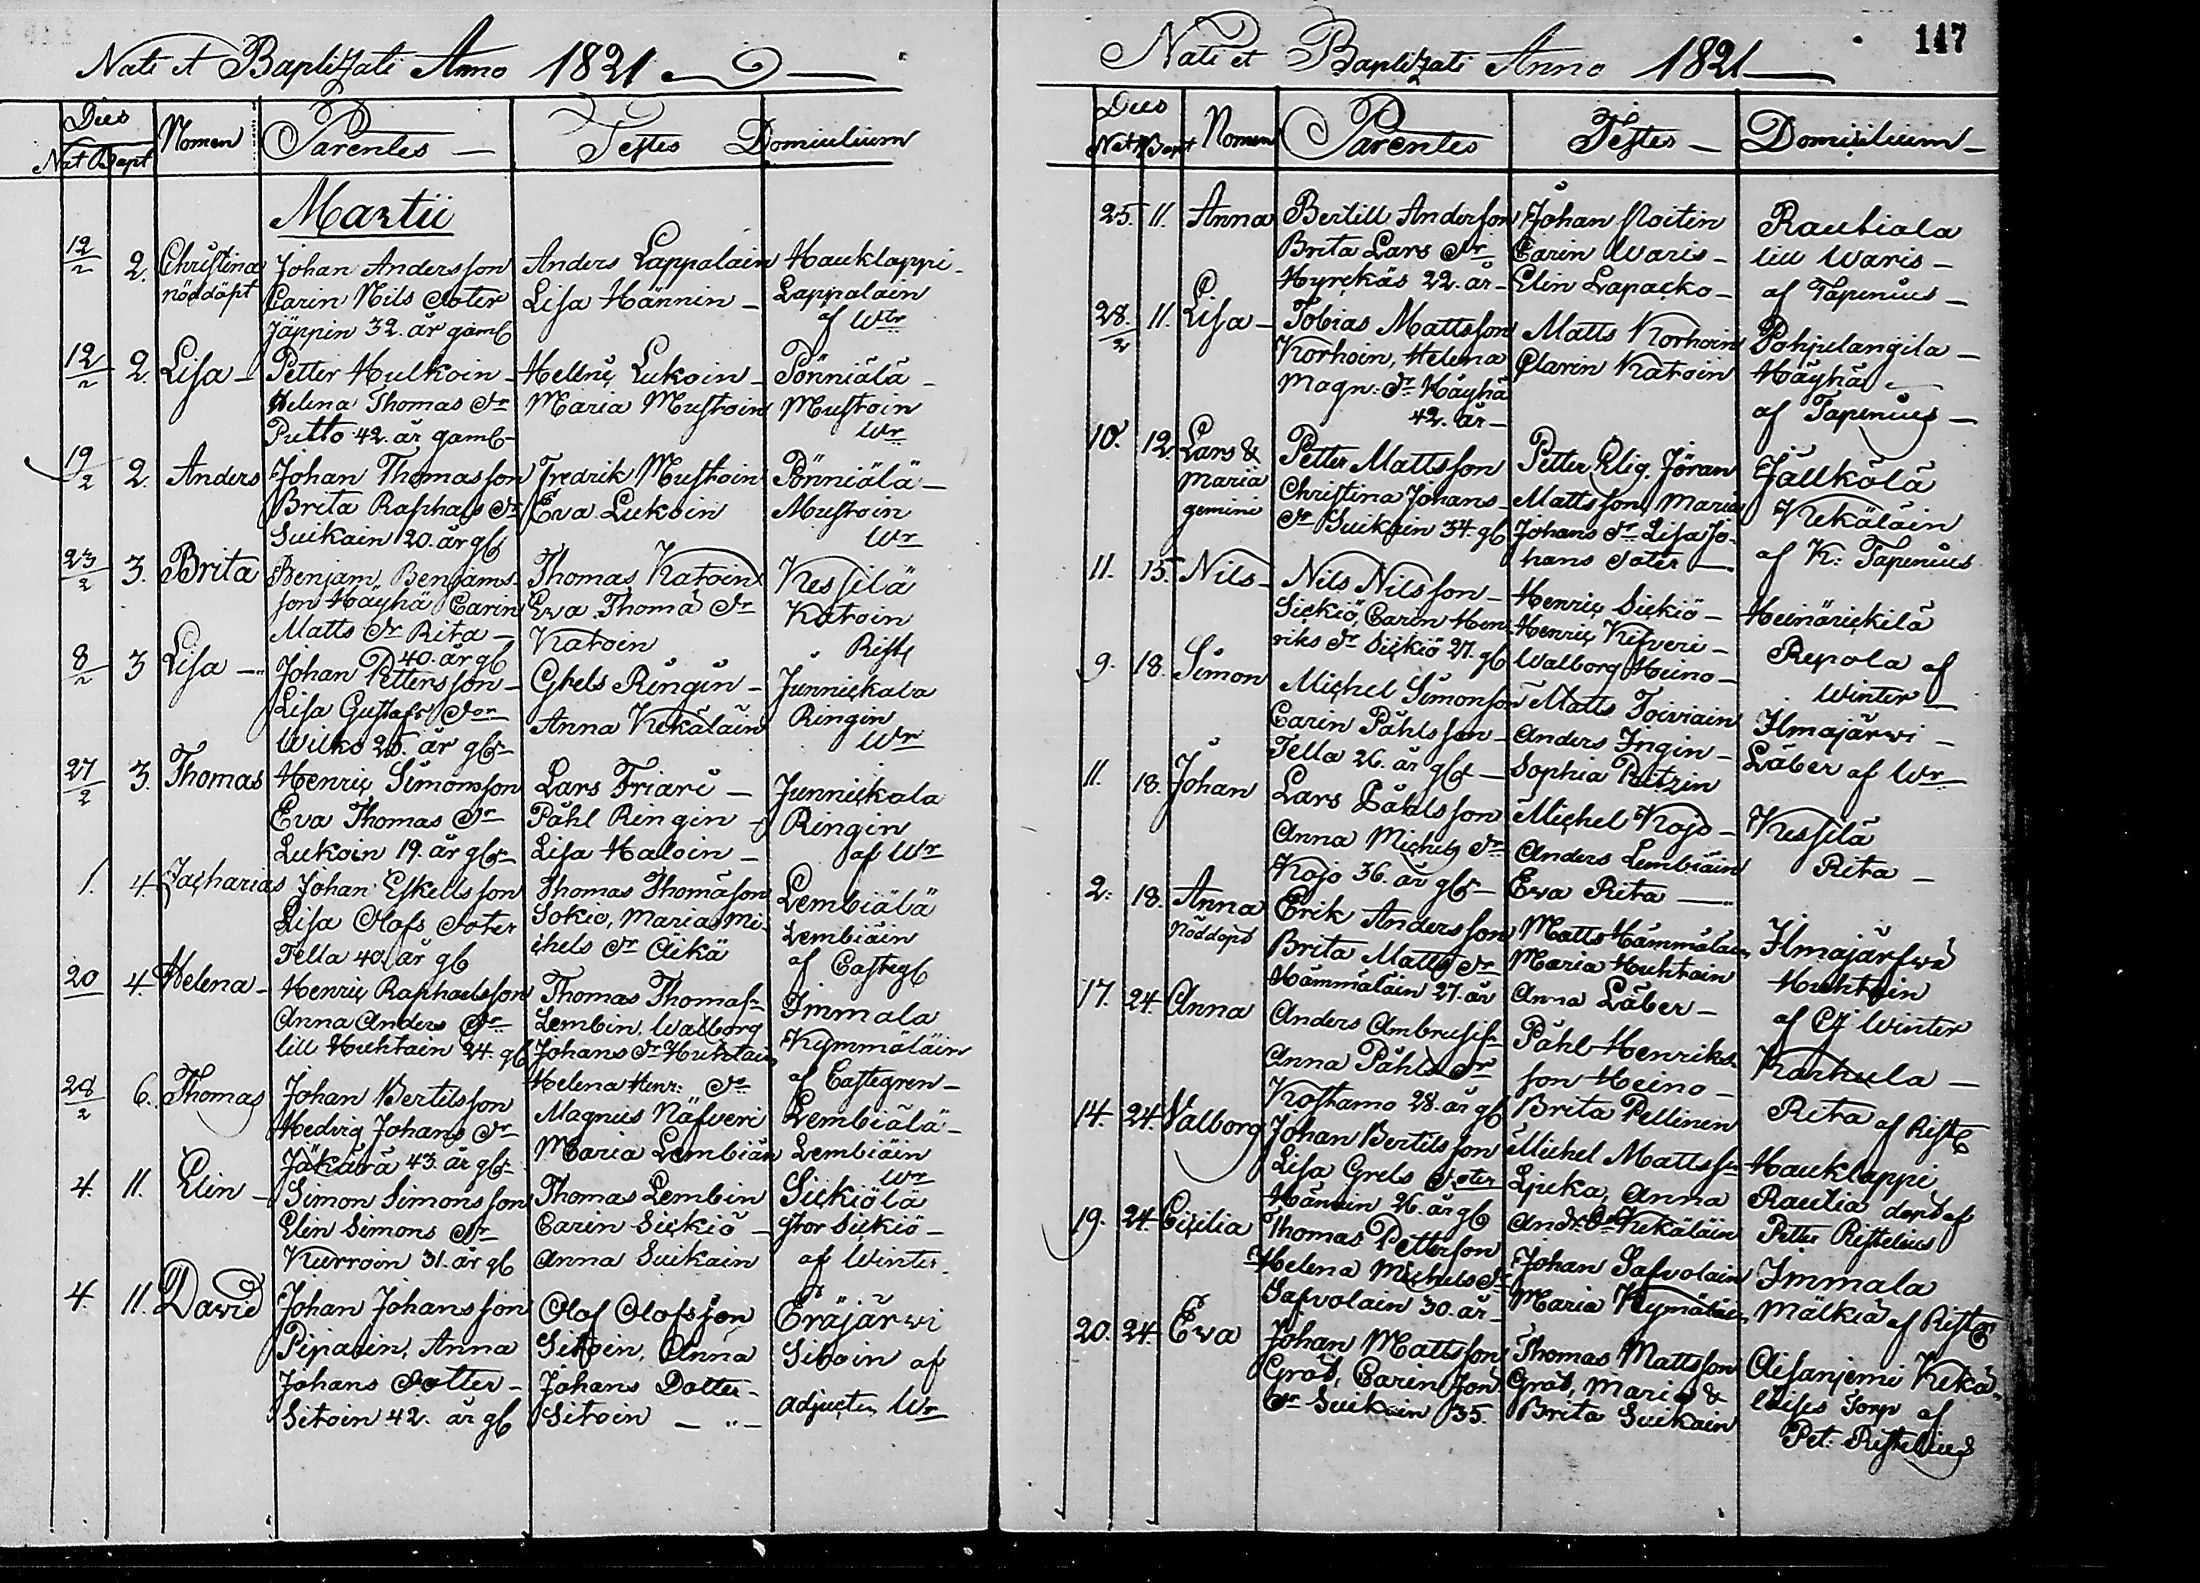 Nati et Baptizati Anno 1821
Dies
Nat Bapt Nomen Parentes Testes Domicilium
Martii
12/2 2. Christina Johan Andersson Anders Lappalain Hauklappi
nöddöpt Carin Nils doter Lisa Hännin Lappalain
Jäppin 32. år gaml af Wtr
12/2 2. Lisa Petter Hulkoin Henric Lukoin Pönniälä
Helena Thomas dr Maria Mustoin Mustoin
Putto 42. år gaml Wr
19/2 2. Anders Johan Thomasson Fredrik Mustoin Pönniälä
Brita Raphaels dr Eva Lukoin Mustoin
Suikain 20. år gl Wr
23/2 3. Brita Benjam. Benjams- Thomas Katoin Kessilä
son Häyhä Carin Eva Thoma dr Katoin
Matts dr Rita Katoin Rist
40. år gl
8/2 3 Lisa Johan Pettersson Grels Ringin Junnickala
Lisa Gustafs dr Anna Kekäläin Ringin
Wilko 25. år gl Wr
27/2 3. Thomas Henric Simonsson Lars Friari Junnickala
Eva Thomas dr Påhl Ringin Ringin
Lukoin 19. år gl Lisa Haloin af Wr
1. 4. Zacharias Johan Eskellsson Thomas Thomason Lembiälä
Lisa Olofs doter Sokio, Maria Mi- Lembiäin
Tella 40. år gl chels dr Äikä af Castegl
20 4. Helena Henric Raphaelsson Thomas Thomas- Immala
Anna Anders dr Lembin, Walborg Kymmäläin
lill Huhtain 24. gl Johans dr Huhtain af Castegren
Helena Henr: dr
28/2 6. Thomas Johan Bertilsson Magnus Näfveri Lembiälä
Hedvig Johans dr Maria Lembiäin Lembiäin
Jäkärä 43. år gl Wr
4. 11. Elin Simon Simonsson Thomas Lembin Sickiölä
Elin Simons dr Carin Sickiö stor Sickiö
Kurroin 31. år gl Anna Suikain af Winter
4. 11. David Johan Johansson Olof Olofsson Eräjärwi
Piparin, Anna Sitoin, Anna Sitoin af
Johans dotter Johans Dotter adjucten Wr
Sitoin 42. år gl Sitoin
147
Nati et Baptizati Anno 1821
Dies
Nat Bapt Nomen Parentes Testes Domicilium
25. 11. Anna Bertill Andersson Johan Roitin Rautiala
Brita Lars dr Carin Waris lill Waris
Hyrckäs 22. år Elin Lapacko af Tapenius
28/2 11. Lisa Tobias Mattsson Matts Korhoin Pohjelangila
Korhoin, Helena Carin Katoin Häyhä
Magn: dr Häyhä af Tapenius
42. år
10. 12. Lars & Petter Mattsson Petter Elig. Jöran Jällkölä
Maria Christina Johans Mattsson, Maria Kekäläin
gemini dr Suikain 34. gl Johans dr Lisa Jo- af K: Tapenius
hans doter
11. 15. Nils Nils Nilsson Henric Sickiö Heinärickilä
Sickiö, Carin Hen- Henric Kifveri Repola af
riks dr Sickiö 27. gl Walborg Heino Winter
9. 18. Simon Michel Simonson Matts Toiviain Ilmajärwi
Carin Påhlsson Anders Ingin Läber af Wr
Tella 26. år gl Sophia Pätzin
11. 18. Johan Lars Påhlsson Michel Kojo Kessilä
Anna Michels dr Anders Lembiäin Rita
Kojo 36. år gl Eva Rita
2. 18. Anna Erik Andersson Matts Hämmäläin Ilmajärfwi
Nöddöpt Brita Matts dr Maria Huhtain Huhtain
Hämmäläin 27. år Anna Läber af Ej Winter
17. 24. Anna Anders Ambrusis- Påhl Henriks- Karhula
Anna Påhls dr son Heino Rita af Rist
Kostamo 28. år gl Brita Pellinen
14. 24. Valborg Johan Bertilsson Michel Mattsson Hauklappi
Lisa Grels doter Ljuka, Anna Rautia
Hännin 26. år gl Andr. dr Kekäläin Petter Ristelius
19. 24. Cicilia Thomas Petterson Johan Safvolain Immala
Helena Michels dr Maria Kymäläin Mälkiä af Rist
Safvolain 30. år
20. 24. Eva Johan Mattsson Thomas Mattsson Äisänjemi Kekä-
Gröd, Carin Jon Gröd, Maria & läises Torp af
dr Suikain 35. Brita Suikain Pet: Ristelius